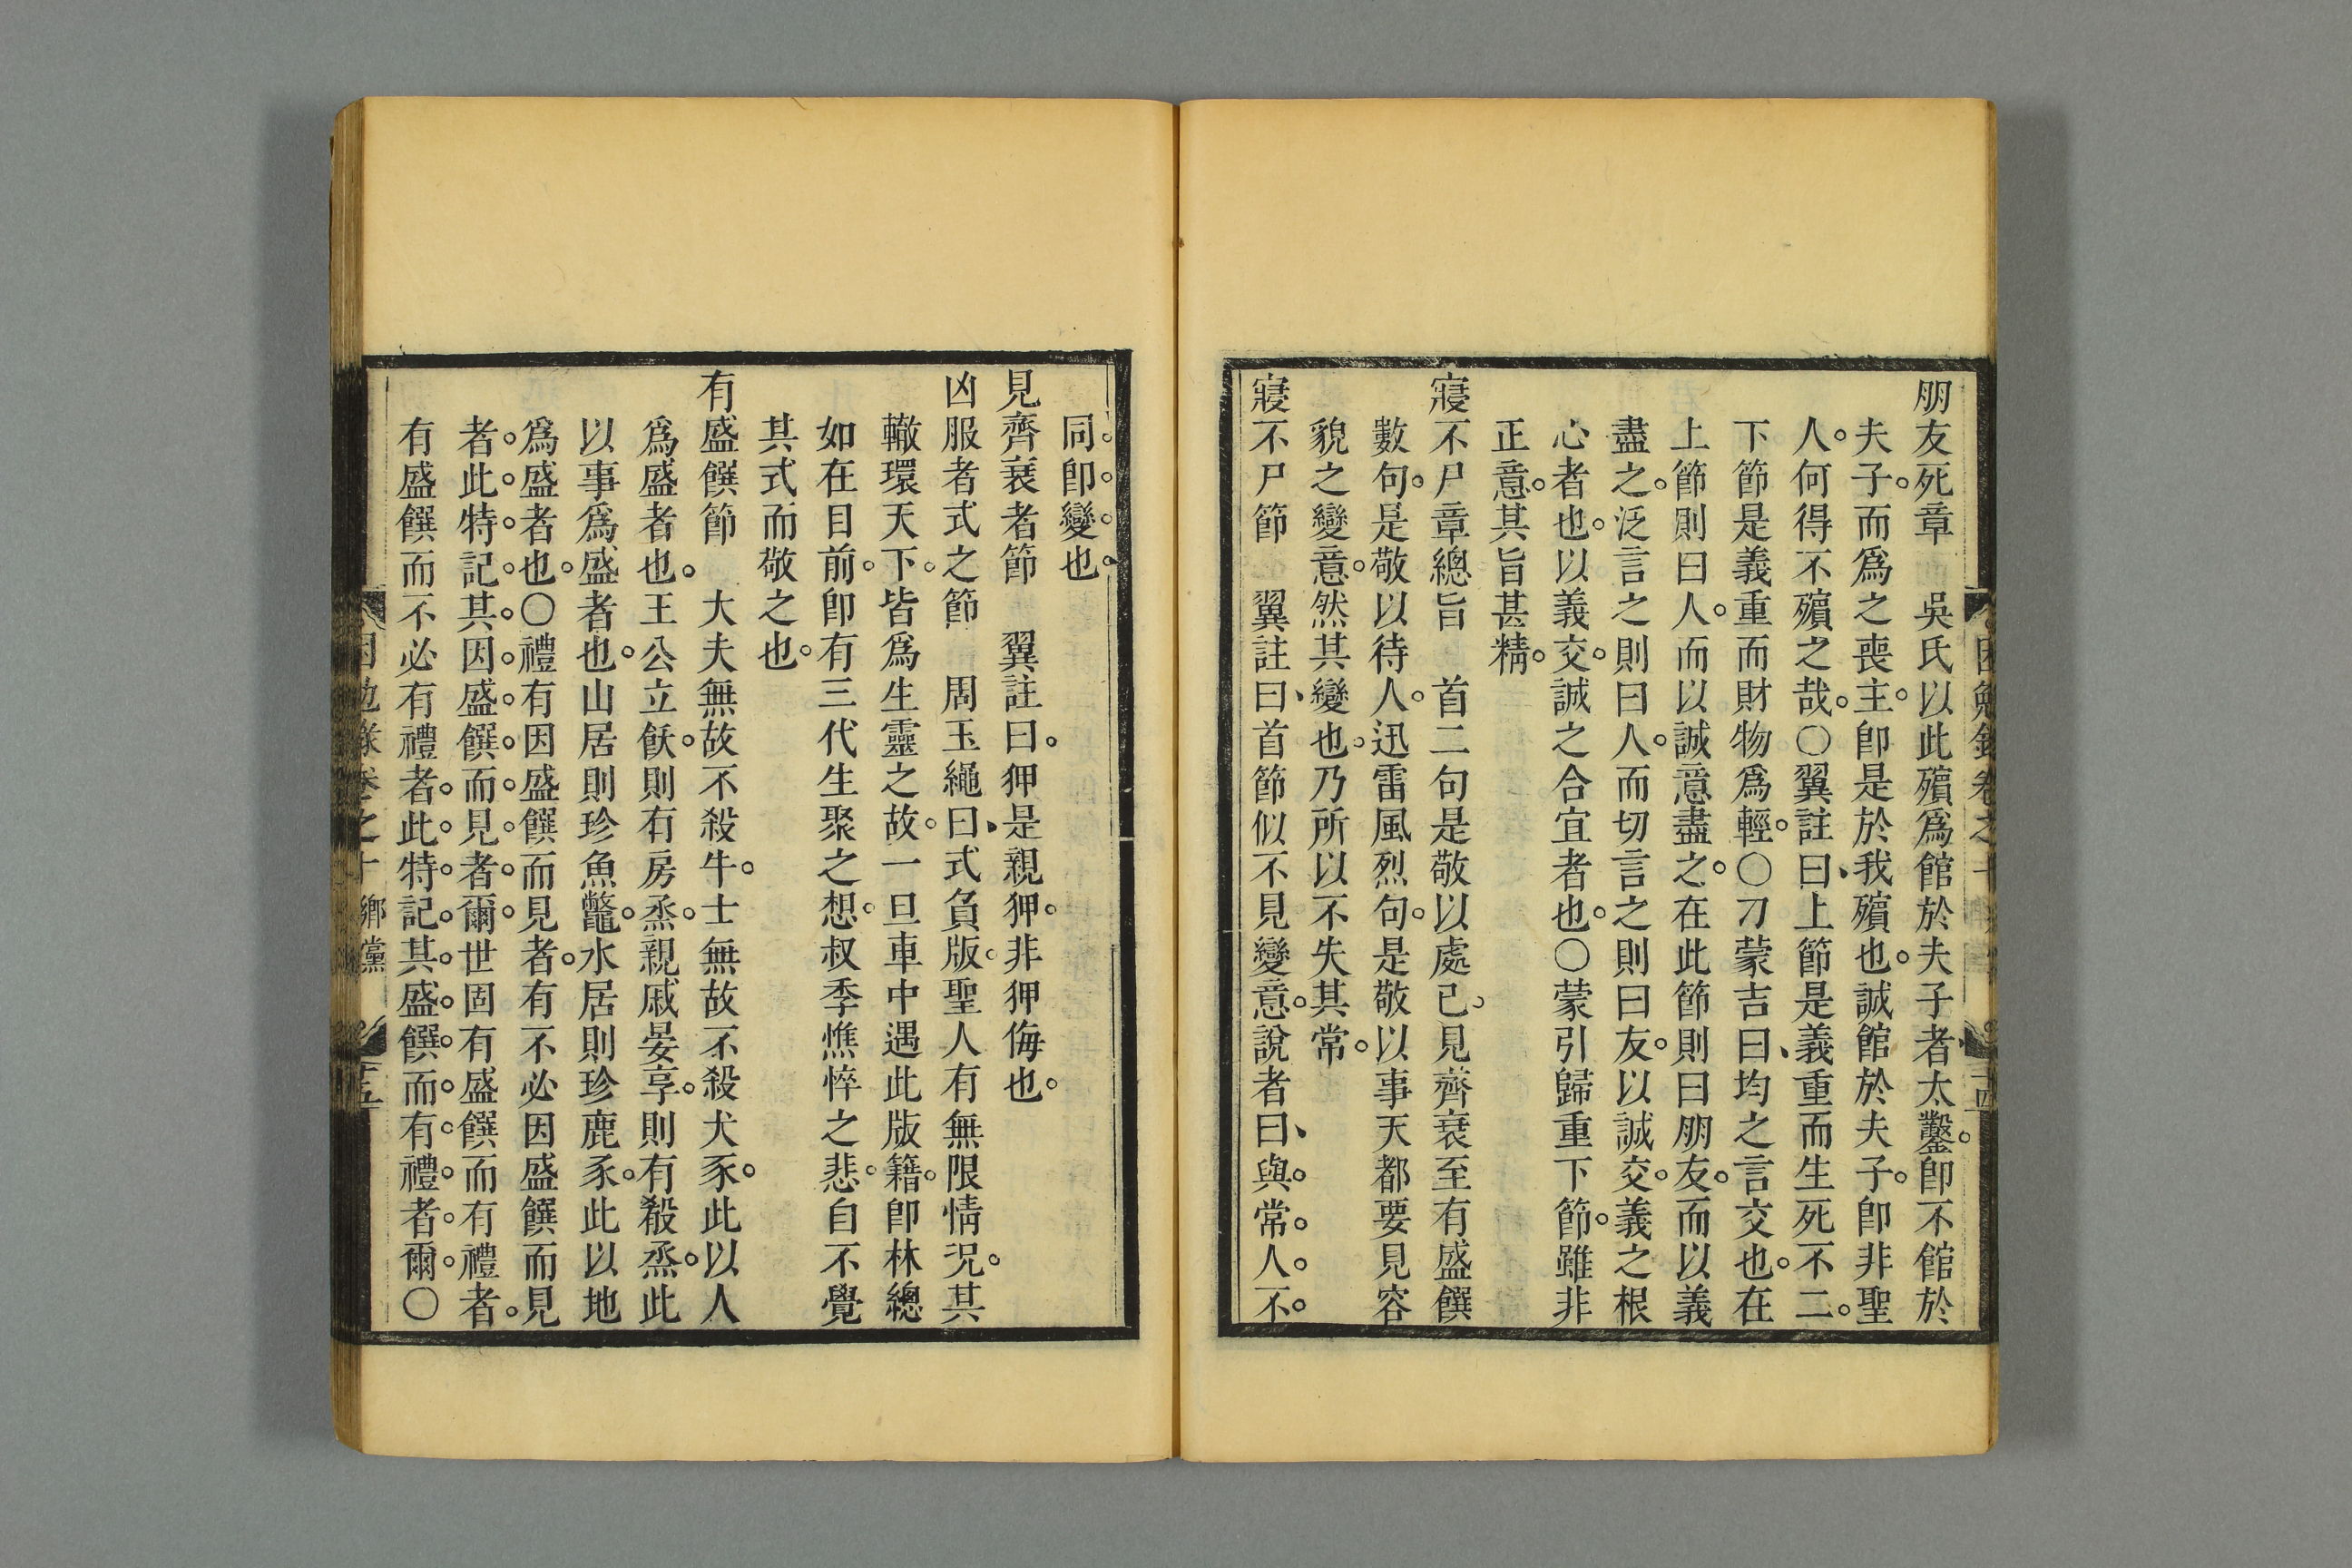 朋友死章　吳氏以此殯爲館於夫子者太鑿。卽不館於
夫子。而爲之喪主。卽是於我殯也。誠館於夫子。卽非聖
人。人何得不殯之哉。〇翼註曰、上節是義重而生死不二。
下節是義重而財物爲輕。〇刁蒙吉曰、均之言交也。在
上節則曰人。而以誠意盡之。在此節則曰朋友。而以義
盡之。泛言之則曰人。而切言之則曰友。以誠交。義之根
心者也。以義交。誠之合宜者也。〇蒙引歸重下節。雖非
正意。其旨甚精。
寢不尸章總旨　首二句是敬以處己。見齊衰至有盛饌
數句。是敬以待人。迅雷風烈句。是敬以事天都要見容
貌之變意。然其變也。乃所以不失其常。
寢不尸節　翼註曰、首節似不見變意。說者曰、與常人不
同。卽變也。
見齊衰者節　翼註曰。狎是親狎。非狎侮也。
凶服者式之節　周玉繩曰、式負版。聖人有無限情况。其
轍環天下。皆爲生靈之故。一旦車中遇此版籍。卽林總
如在目前。卽有三代生聚之想。叔季憔悴之悲。自不覺
其式而敬之也。
有盛饌節　大夫無故不殺牛。士無故不殺犬豕。此以人
爲盛者也。王公立飫。則有房烝。親戚晏享。則有殽烝。此
以事爲盛者也。山居則珍魚鼈。水居則珍鹿豕。此以地
爲盛者也。〇禮有因盛饌而見者。有不必因盛饌而見
者。此特記其因盛饌而見者爾世固有盛饌而有禮者。
有盛饌而不必有禮者。此特記其盛饌而有禮者爾。〇